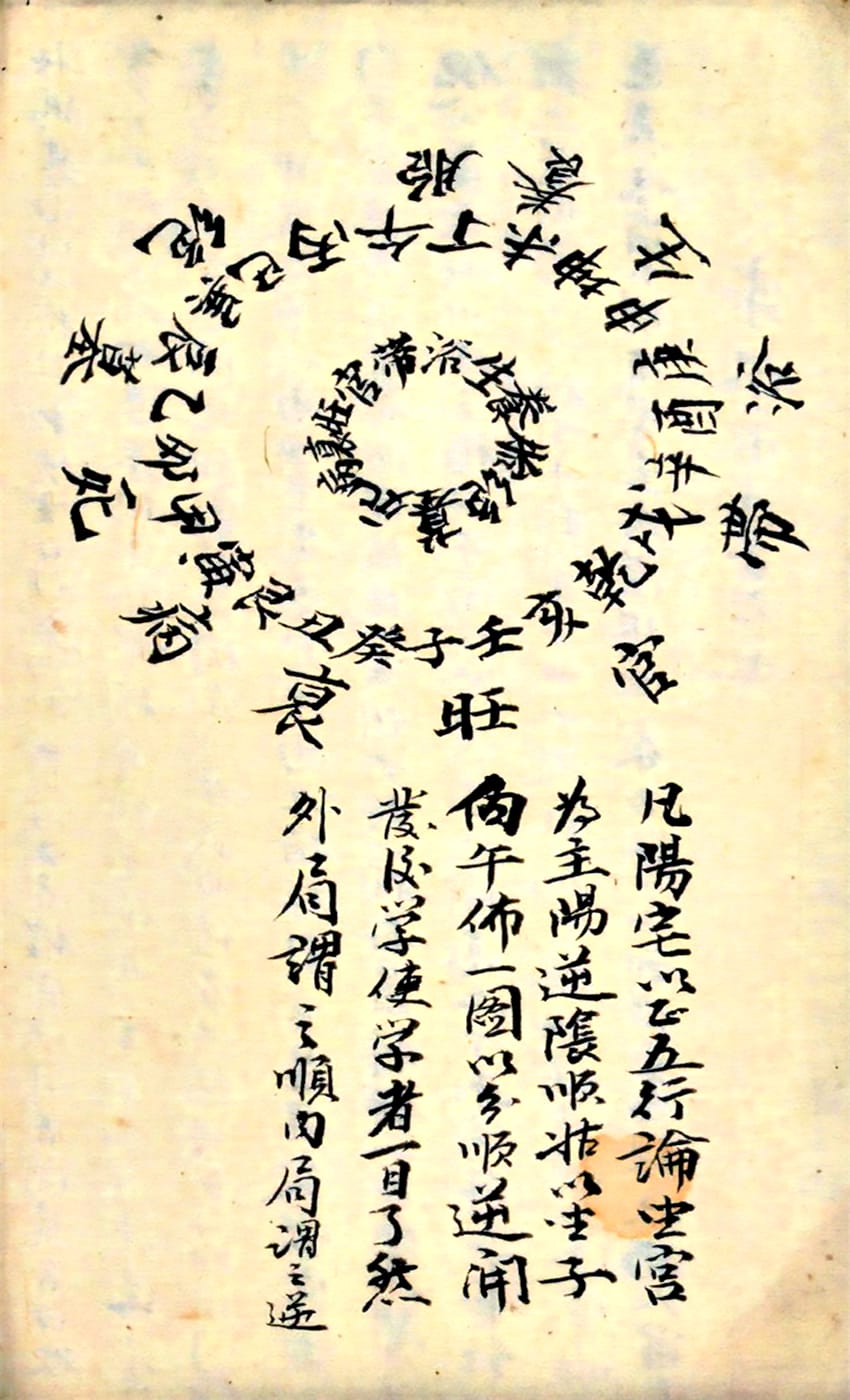 胎養生浴帶官旺衰病死墓絕
壬子癸丑艮寅甲卯乙辰巽巳丙午丁未坤申庚酉辛戌乾亥
帶浴生養胎絕墓死病衰旺官
凡陽宅以正五行論坐宮
為主陽逆陰順姑以坐子
向午佈一图以分順逆開
發後学使学者一目了然
外局謂之順內局謂之逆